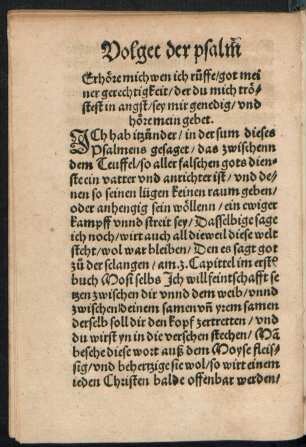 Volget der psalm̄
Erhöre mich wen ich rüffe/got mei
ner gerechtigkeit/der du mich trö-
stest in angst/sey mir genedig/vnd
höre mein gebet.
ICh hab itzünder/in der sum dieses
Psalmens gesaget/das zwischenn
dem Teuffel/so aller falschen gots dien-
ste ein vatter vnd anrichter ist/vnd de-
nen so seinen lügen keinen raum geben/
oder anhengig sein wöllenn/ein ewiger
kampff vnnd streit sey/Dasselbige sage
ich noch/wirt auch all die weil diese welt
steht/wol war bleiben/Den es sagt got
zü der schlangen/am.3.Capittel im erstē
buch Mosi selbs Ich will feintschafft se
tzen zwischen dir vnnd dem weib/vnnd
zwischen deinem samen vñ yrem samen
derselb soll dir den kopf zertretten/vnd
du wirst yn in die verschen stechen/Mā
besehe diese wort auß dem Moyse fleis-
sig/vnd behertzige sie wol/so wirt einem
ieden Christen balde offenbar werden/